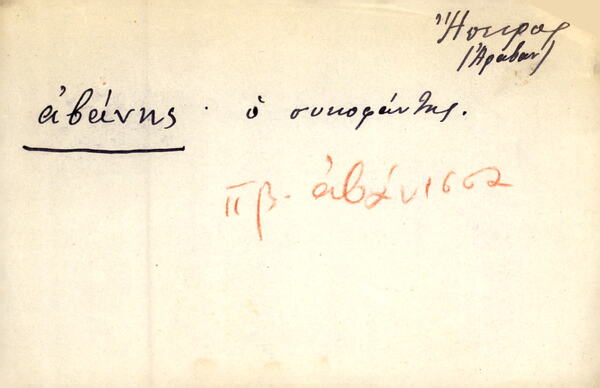 Ἤπειρος
(Ἀραβαν)
ἀβάνης · ὁ συκοφάντης.
πβ. ἀβάνισσα